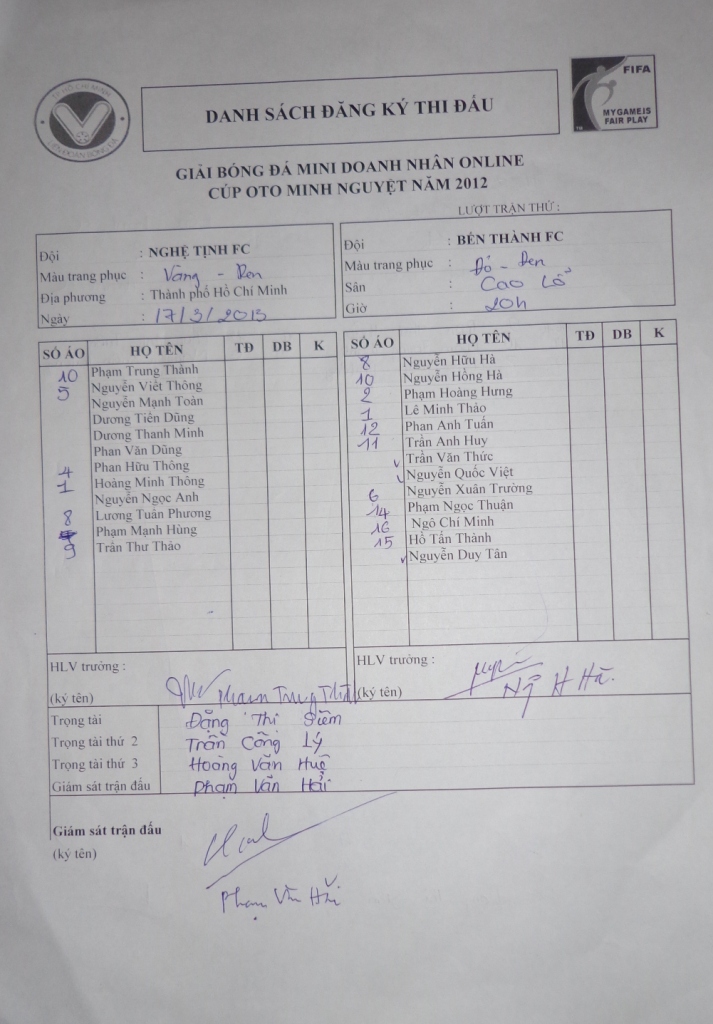 TP HỒ CHÍ MINH
LIÊN ĐOÀN BÓNG ĐÁ
DANH SÁCH ĐĂNG KÝ THI ĐẤU
FIFA
MY GAME IS
FAIR PLAY
TM
GIẢI BÓNG ĐÁ MINI DOANH NHÂN ONLINE
CÚP OTO MINH NGUYỆT NĂM 2012
LƯỢT TRẬN THỨ :
Đội : NGHỆ TỊNH FC
Màu trang phục : Vàng - Đen
Địa phương : Thành phố Hồ Chí Minh
Ngày : 17/3/2013
Đội : BẾN THÀNH FC
Màu trang phục : Đỏ - Đen
Sân : Cao Lổ
Giờ : 20h
SỐ ÁO HỌ TÊN TĐ DB K
10 Phạm Trung Thành
5 Nguyễn Viết Thông
Nguyễn Mạnh Toàn
Dương Tiến Dũng
Dương Thanh Minh
Phan Văn Dũng
4 Phan Hữu Thông
1 Hoàng Minh Thông
Nguyễn Ngọc Anh
8 Lương Tuấn Phương
Phạm Mạnh Hùng
9 Trần Thư Thảo
SỐ ÁO HỌ TÊN TĐ DB K
8 Nguyễn Hữu Hà
10 Nguyễn Hồng Hà
2 Phạm Hoàng Hưng
1 Lê Minh Thảo
12 Phan Anh Tuấn
11 Trần Anh Huy
Trần Văn Thức
Nguyễn Quốc Việt
6 Nguyễn Xuân Trường
14 Phạm Ngọc Thuận
16 Ngô Chí Minh
15 Hồ Tấn Thành
Nguyễn Duy Tân
HLV trưởng :
(ký tên) Phạm Trung
HLV trưởng :
(ký tên) Ng H Hà
Trọng tài Đặng Thị Diễm
Trọng tài thứ 2 Trần Công Lý
Trọng tài thứ 3 Hoàng Văn Huệ
Giám sát trận đấu Phạm Văn Hải
Giám sát trận đấu
(ký tên)
Phạm Văn Hải